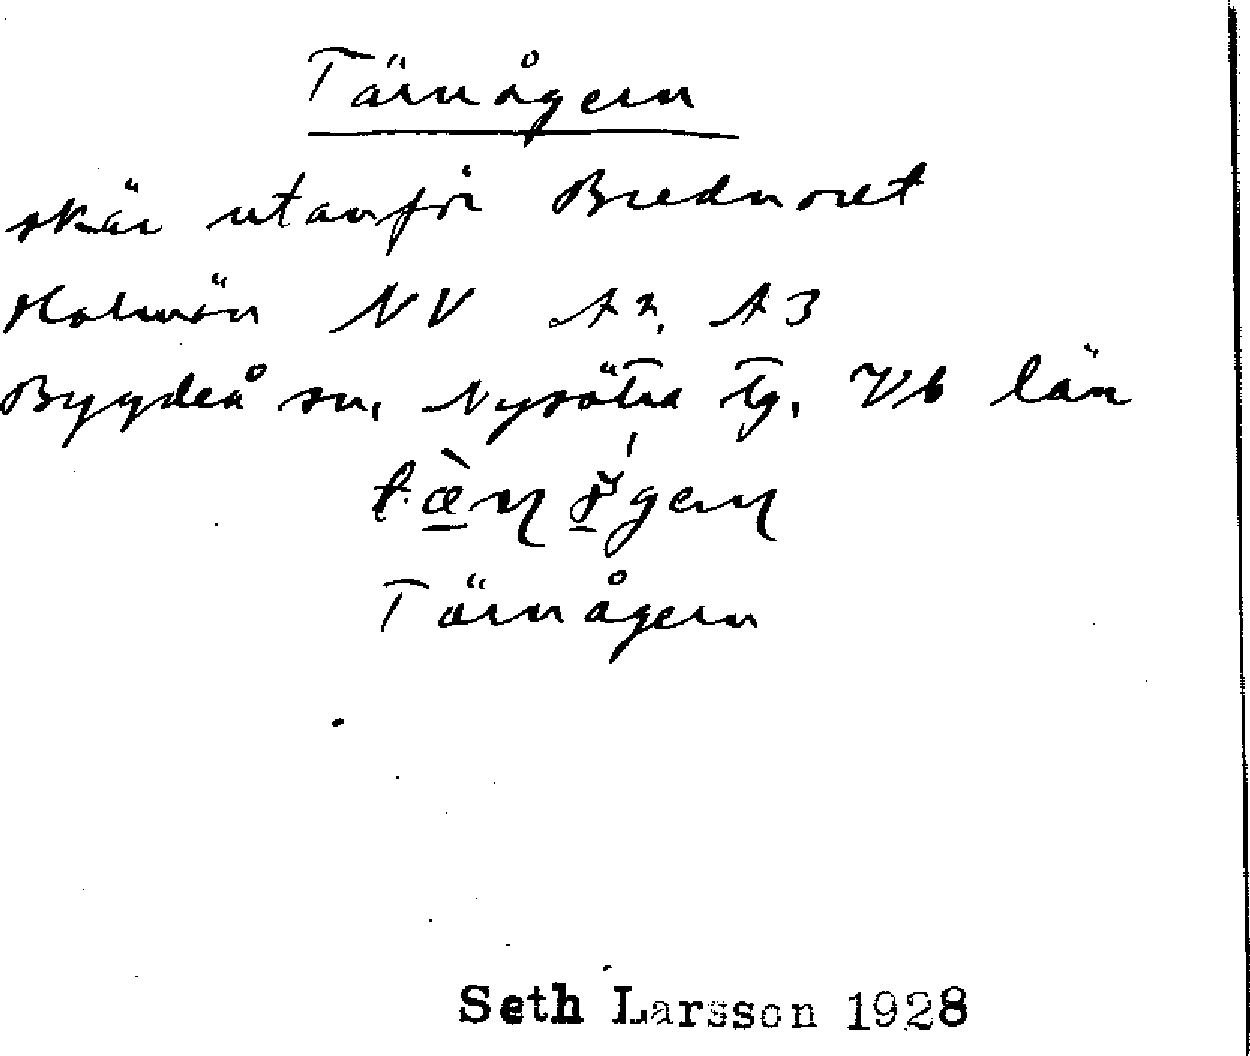 Tärnågern
skär utanför Brednoret
Holmön NV A2, A3
Bygdeå sn, Nysätra tg. Vb län
Tärnågern
Seth Larsson 1928